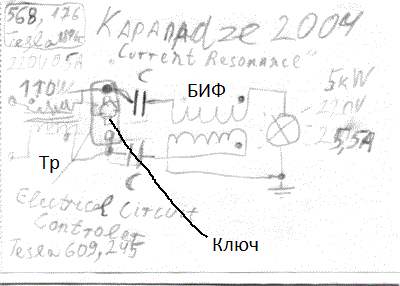 568,176
Tesla 1896
KAPANADze 2004
"Current Resonance"
220V 0.5A
110W
C
БИФ
5kW
220V
25,5A
Тр
C
Electrical Circuit
Controler
Tesla 609,245
Ключ